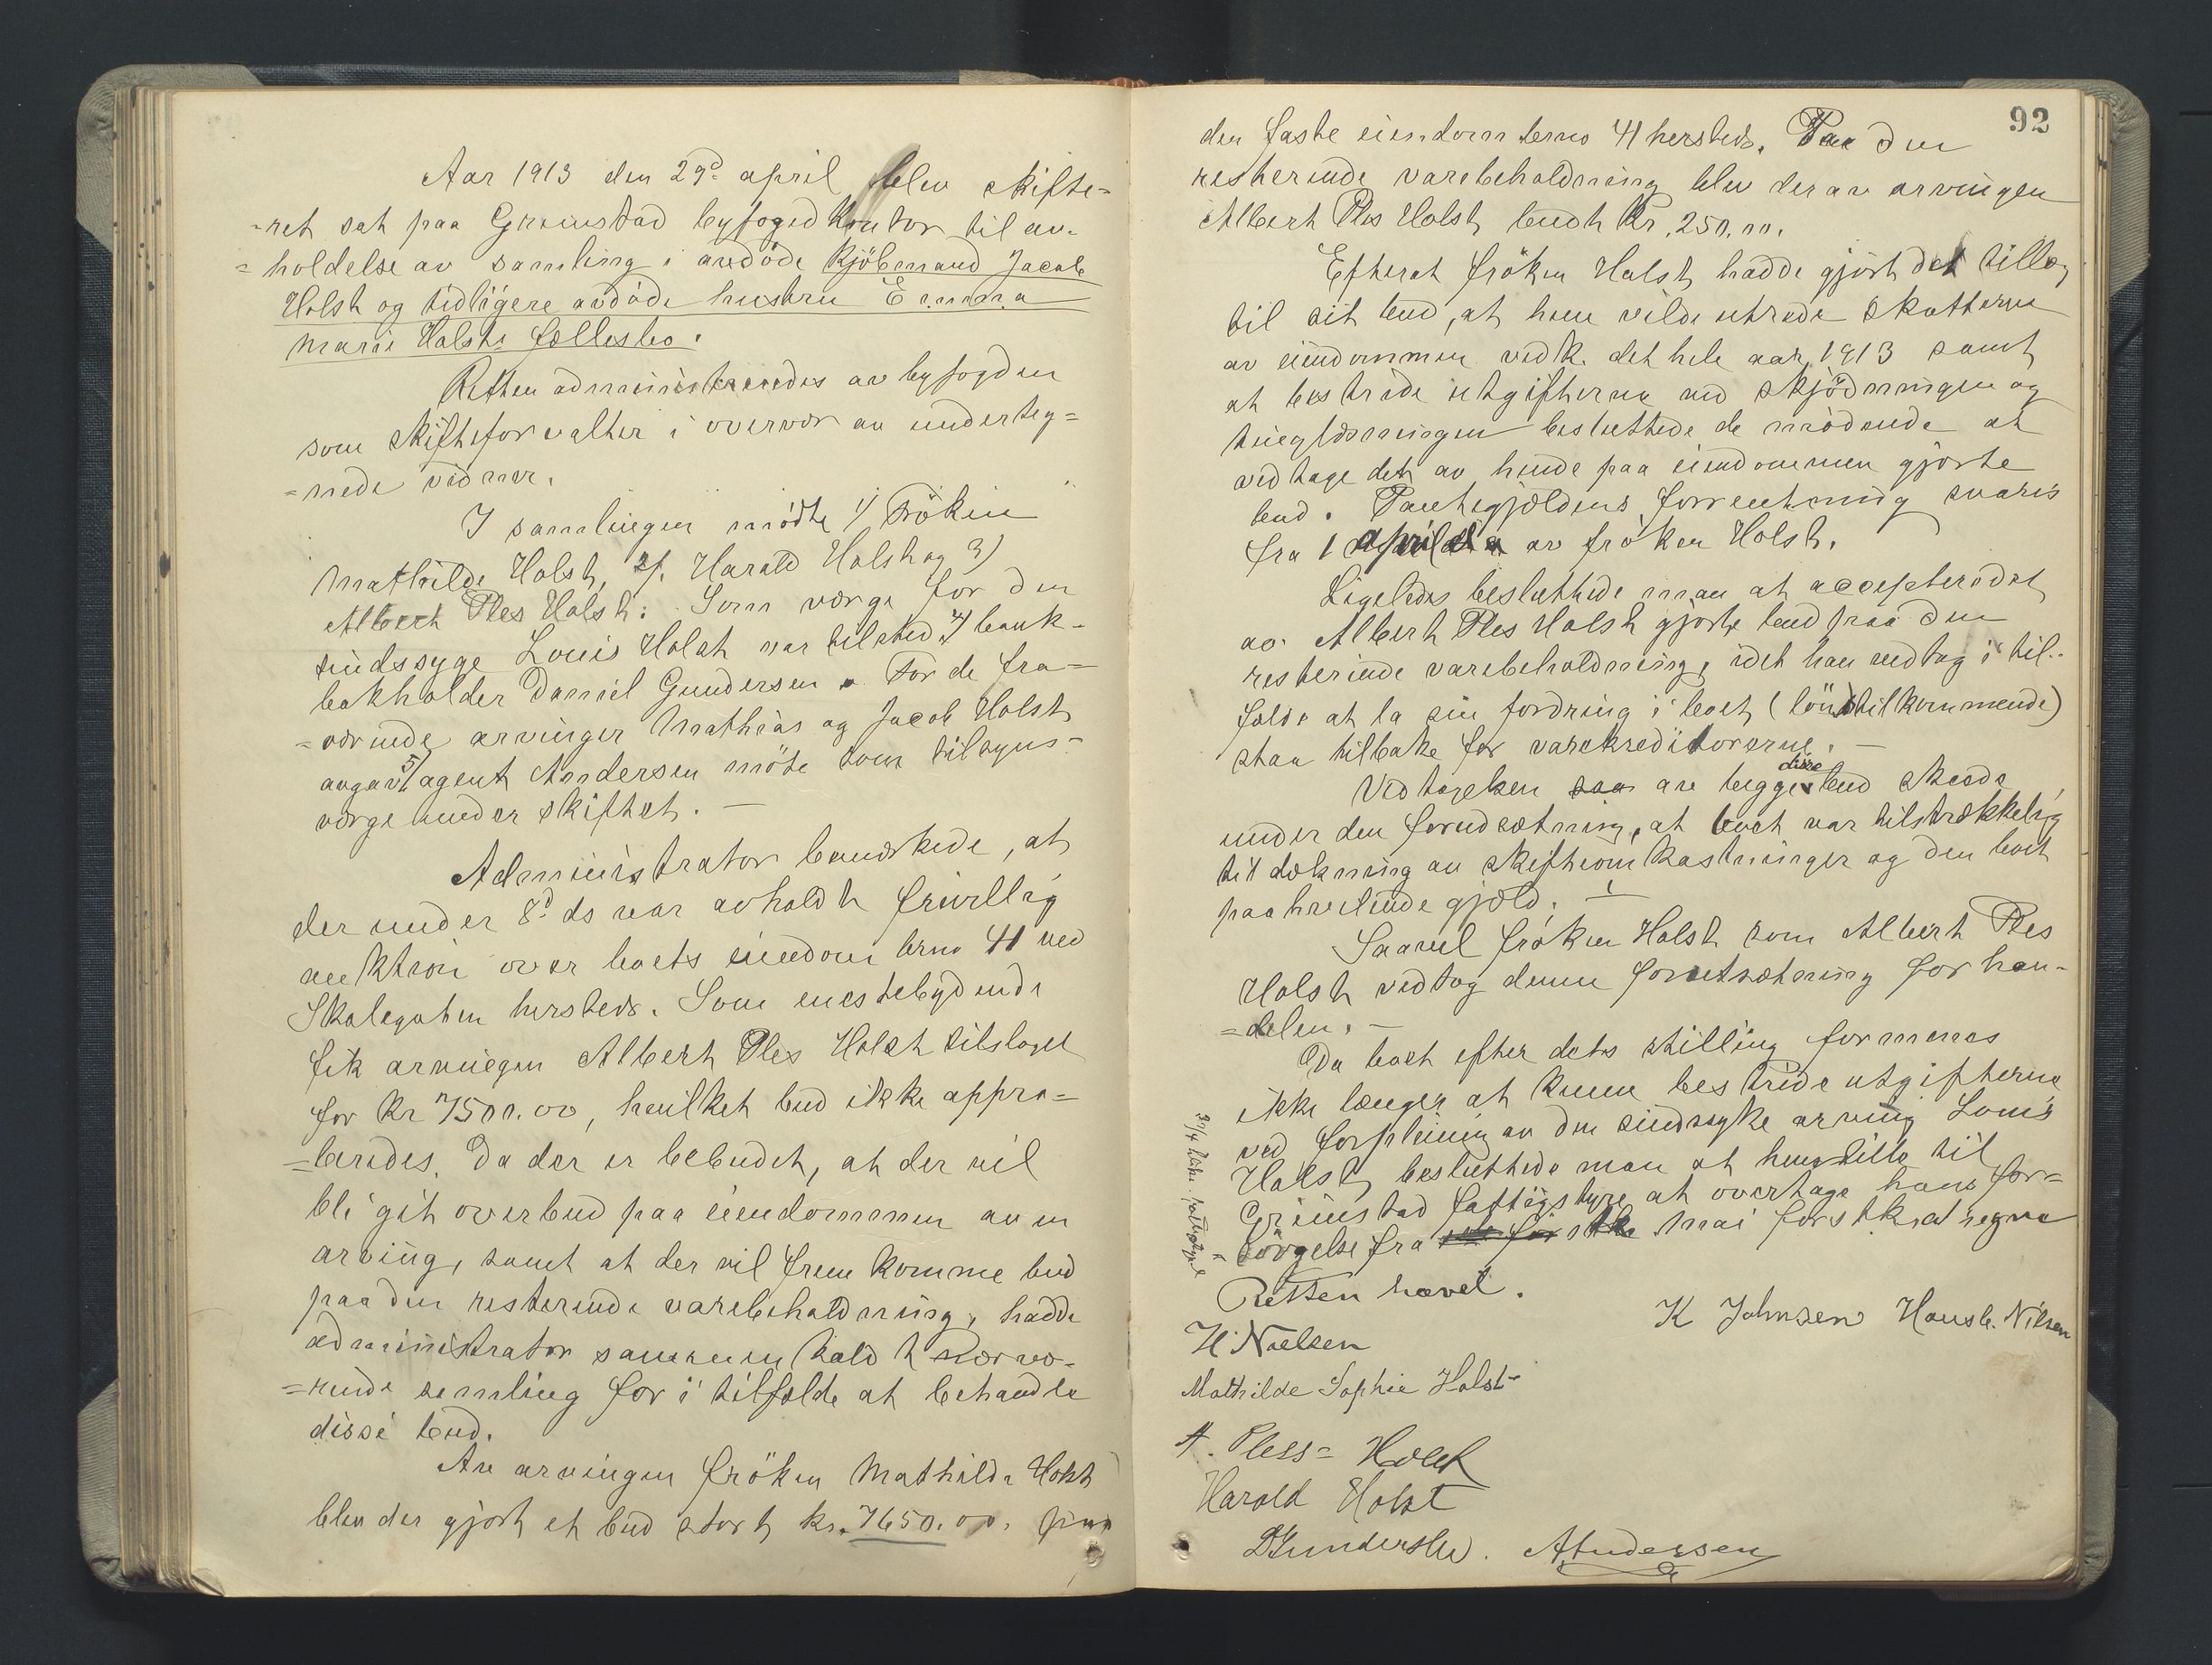 Aar 1913 den 29d april blev skifte-
-ret sat paa Grimstad byfogedkontor til av-
=holdelse av samling i avdöde Kjöbmand Jacob
Holst og tidligere avdöde hustru Emma
Marie Holsts fællesbo.
Retten administreredes av byfogden
som skifteforvalter i overvær av underteg-
=nede vidner.
I samlingen mödte 1) Fröken
Mathilde Holst, 2). Harald Holst og 3)
Albert Ples Holst. Som værge for den
sindssyge Louis Holst var tilsted 4) bank-
bokholder Daniel Gundersen. For de fra-
=værende arvinger Mathias og Jacob Holst
angav 5) agent Andersen möte som tilsyns-
værge under skiftet. —
Administrator bemærkede, at
der under 8d ds var avholdt frivillig
auktion over boets eiendom brno 41 ved
Skolegaten hersteds. Som enestebydende
fik arvingen Albert Ples Holst tilslaget
for kr 7500.00, hvilket bud ikke appro-
=beredes. Da der er bebudet, at der vil
bli git overbud paa eiendommen av en
arving, samt at der vil fremkomme bud
paa den resterende varebeholdning, hadde
administrator sammenkaldt nærvæ-
=rende samling for i tilfælde at behandle
disse bud.
Av arvingen fröken Mathilde Holst
blev der gjort et bud stort kr. 7650.00. paa
92
den faste eiendom brno 41 hersteds. Paa den
resterende varebeholdning blev der av arvingen
Albert Ples Holst budt Kr. 250.00.
Efterat fröken Holst hadde gjort det tillæg
til sit bud, at hun vilde utrede skatterne
av eiendommen vedk. det hele aar 1913 samt
at bestride utgifterne ved skjödningen og
tinglæsningen besluttede de mödende at
vedtage det av hende paa eiendommen gjorte
bud. Pantegjældens forrentning svares
fra 1 april d.a av fröken Holst.
Ligeledes besluttede man at acceptere det
av Albert Ples Holst gjorte bud paa den
resterende varebeholdning, idet han vedtog i til-
fælde at la sin fordring i boet (löntilkommende)
staa tilbake for varekreditorerne. —
Vedtagelsen saa av begge disse bud skede
under den forudsætning, at boet var tilstrækkelig
til dækning av skifteomkostninger og den boet
paahvilende gjæld. —
Saavel fröken Holst som Albert Ples
Holst vedtog denne forutsætning for han-
=delen. —
Da boet efter dets stilling formenes
ikke længer at kunne bestride utgifterne
ved forpleining av den sindssyke arving Louis
Holst, besluttede man at henstille til
Grimstad fattigstyre at overtage hans for-
sörgelse fra mai förstk. at regne
Retten hævet.
K Johnsen Hansb. Nilsen
H. Nielsen
Mathilde Sophie Holst
A. Pless = Holst
Harald Holst
DGundersen. AAndersen